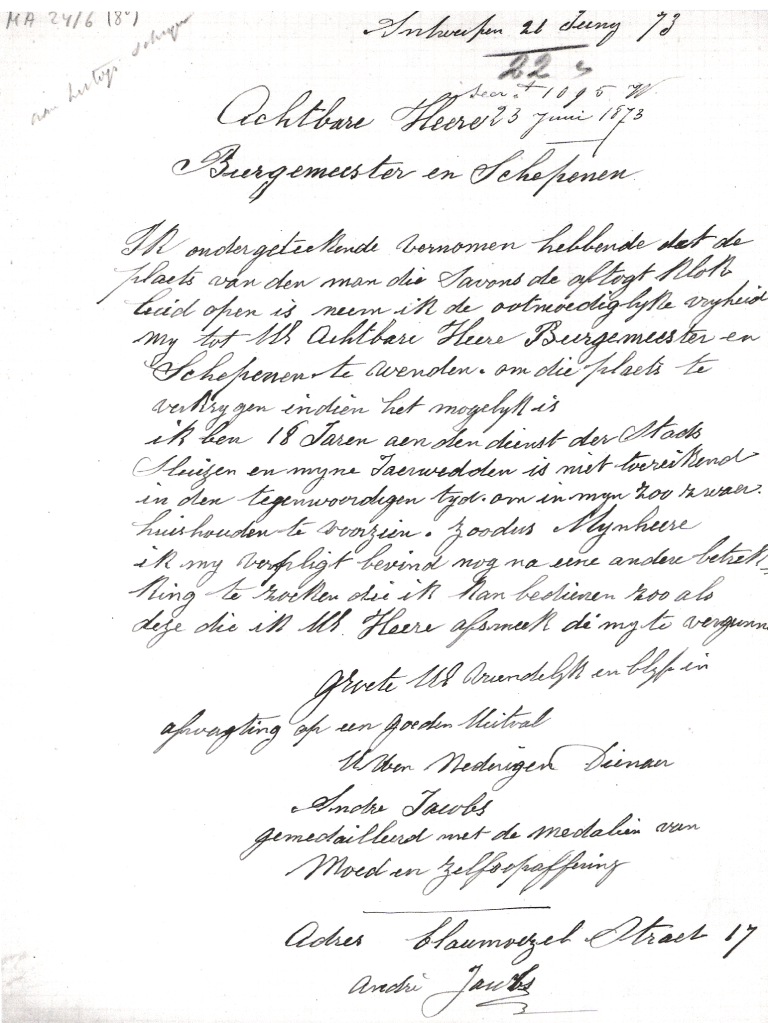 MA 24/6 (8°)
Antwerpen 21 Juny 73
22
1095
23 Juni 1873
Achtbare Heere
Burgemeester en Schepenen
Ik ondergeteekende vernomen hebbende dat de
plaets van den man die Savons de aftogt klok
luid open is neem ik de ootmoediglyke vryheid
my tot UE Achtbare Heere Burgemeester en
Schepenen te wenden. om die plaets te
verkrygen indien het mogelyk is
ik ben 18 Jaren aen den dienst der Stads
Sluizen en myne Jaerwedden is niet toereikend
in den tegenwoordigen tyd. om in myn zoo zwaer.
huishouden te voorzien. zoodus Mynheere
ik my verpligt bevind nog na eene andere betrek-
king te zoeken die ik kan bedienen zoo als
deze die ik UE. Heere afsmeek di my te vergunn
groete UE vriendelyk en blyf in
afwagting op een goeden Uitval
Uwen Nederigen Dienaer
Andre Jacobs
gemedailleerd met de medalien van
Moed en zelfsopaffering
Adres Blauwvezel Straet 17
André Jacobs